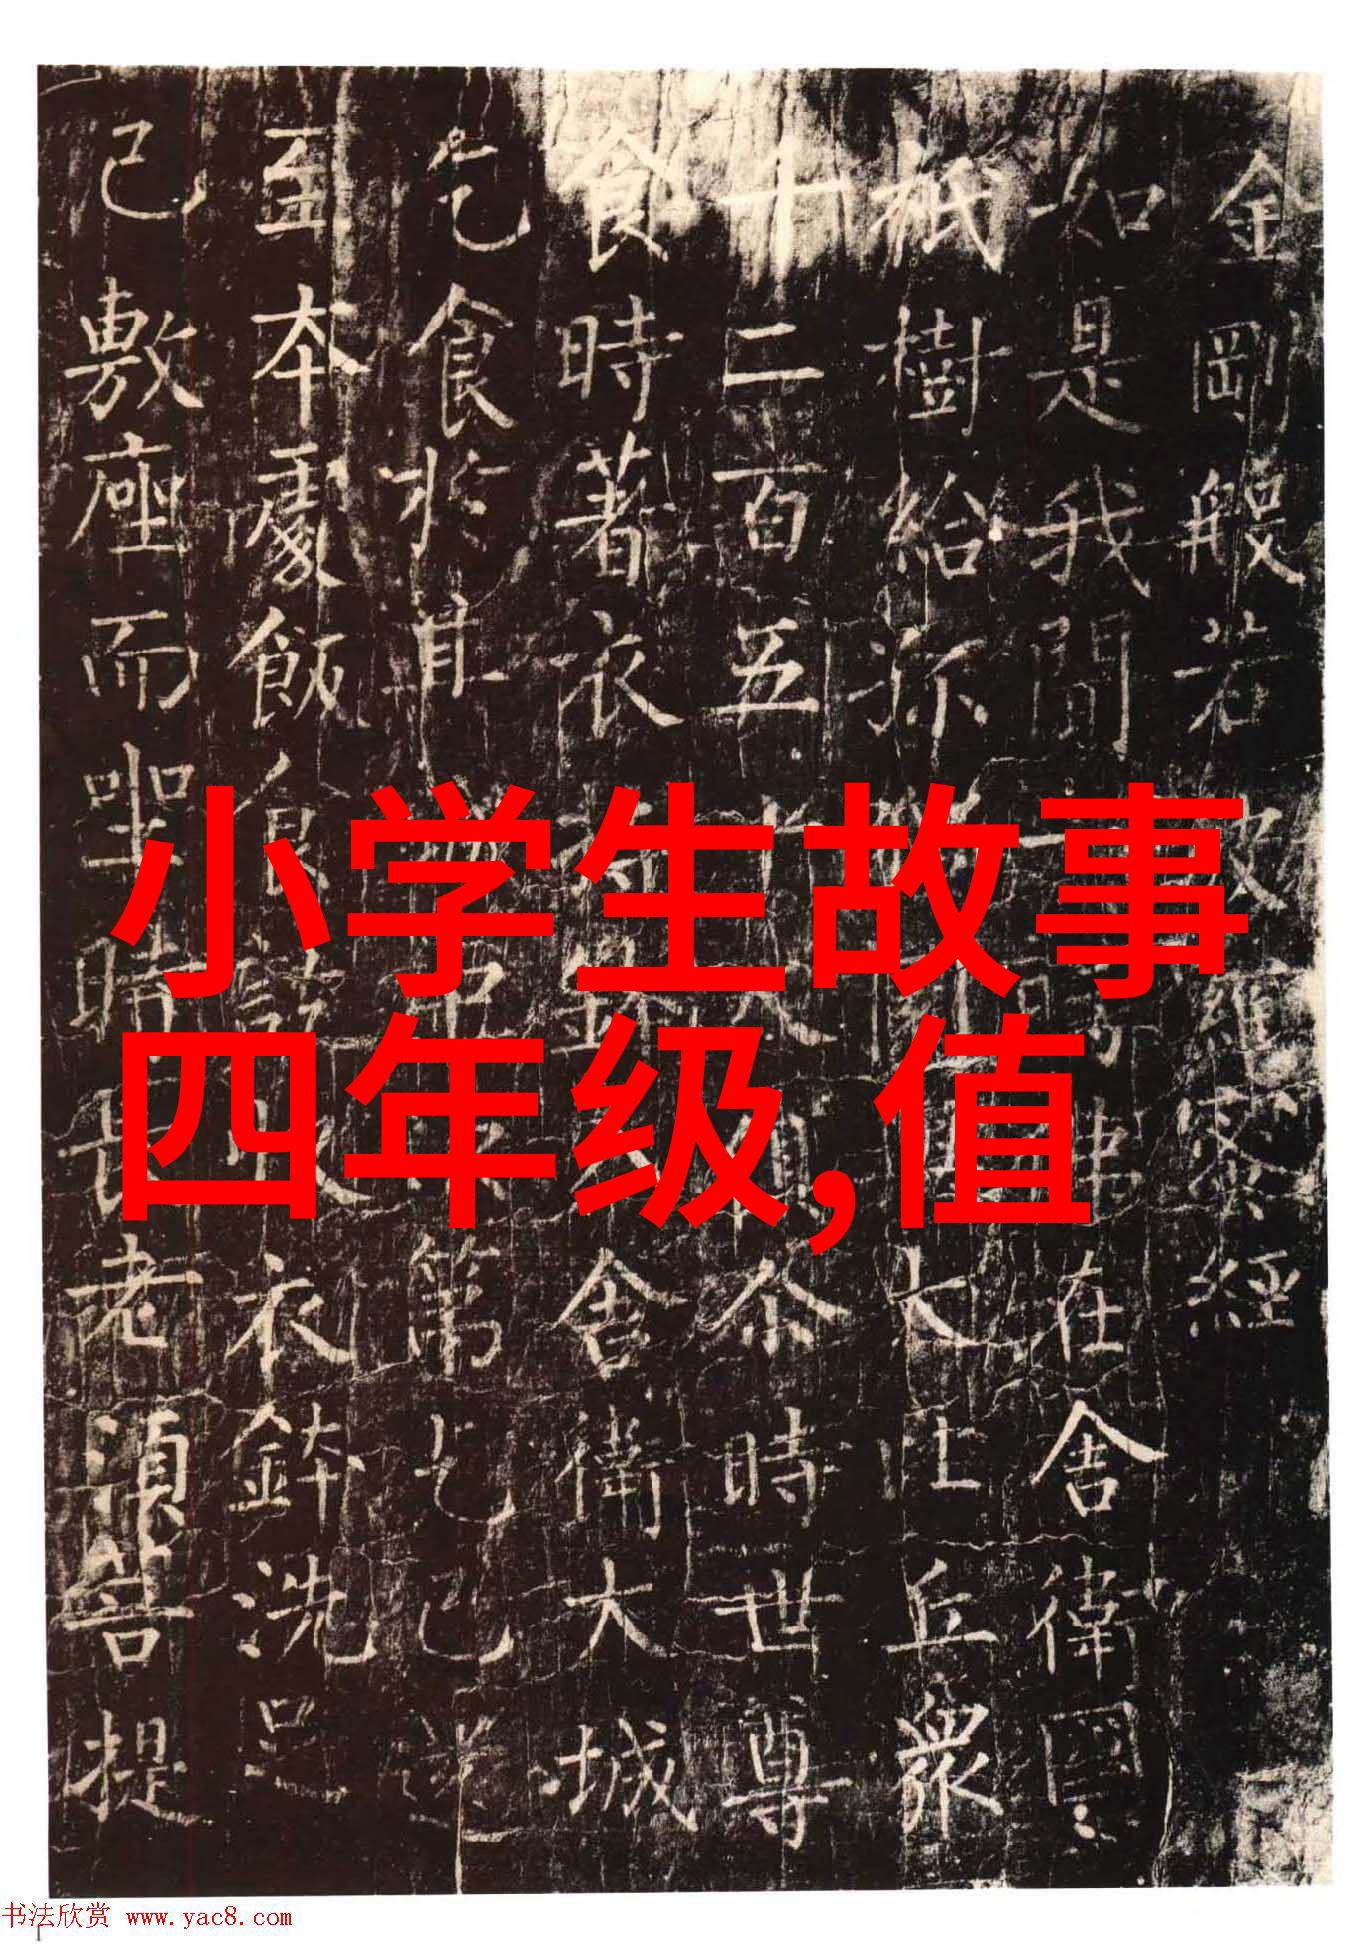 金剛般若波羅蜜經
如是我聞在舍衛國
祇樹給孤獨大比丘衆
千二百五十人俱尒時世尊
食時著衣持鉢入舍衛大城
乞食於其城中第乞已還
至本處飯食訖收衣鉢洗足
已敷座而坐時長老須菩提
小学生故事
四年级,值
书法欣赏 www.yac8.com